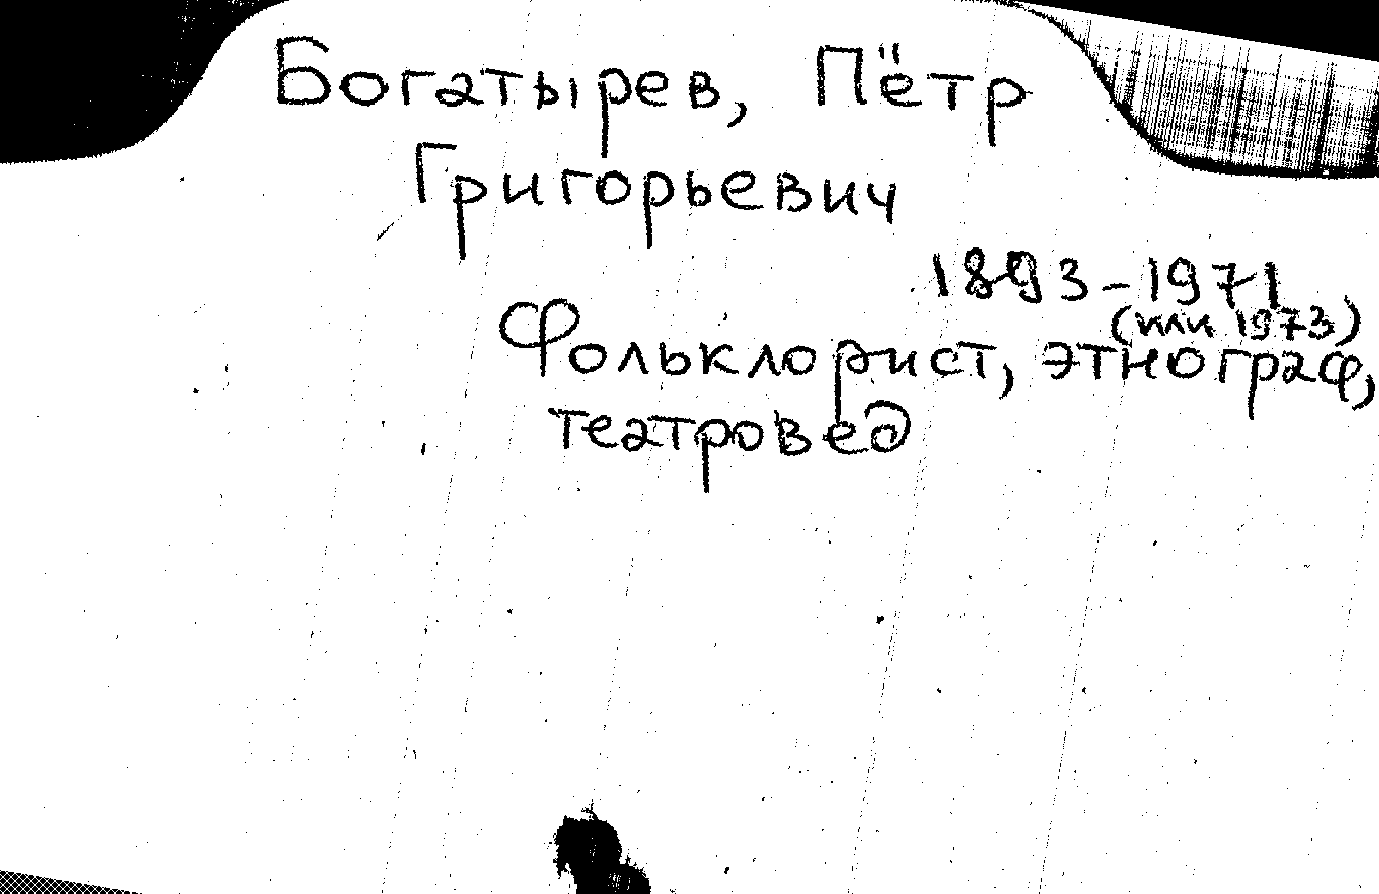 Богатырев, Пётр
Григорьевич
1893-1971
(или 1973)
Фольклорист, этнограф,
театровед